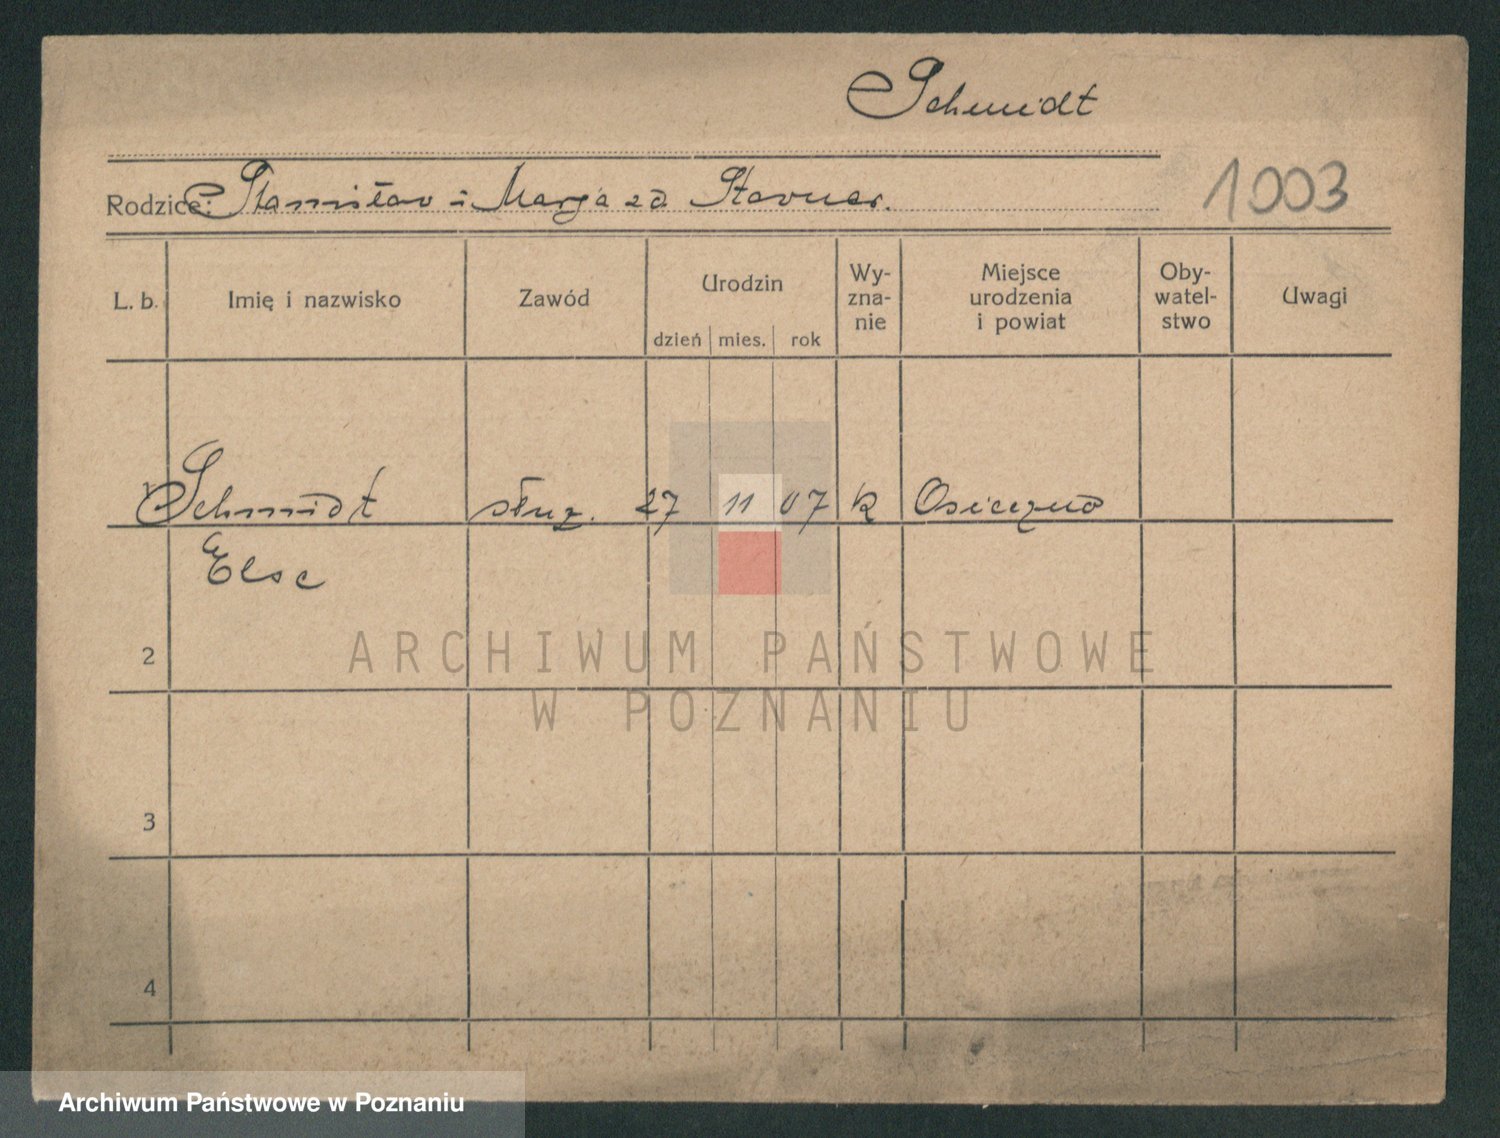 Schmidt
Rodzice: Stanisław i Marja zd.
1003
L. b. Imię i nazwisko Zawód Urodzin dzień mies. rok Wy-zna-nie Miejsce urodzenia i powiat Oby-watel-stwo Uwagi
1 Schmidt służ. 27 11 07 k Osieczno
Else
2
ARCHIWUM PAŃSTWOWE
W POZNANIU
3
4
Archiwum Państwowe w Poznaniu